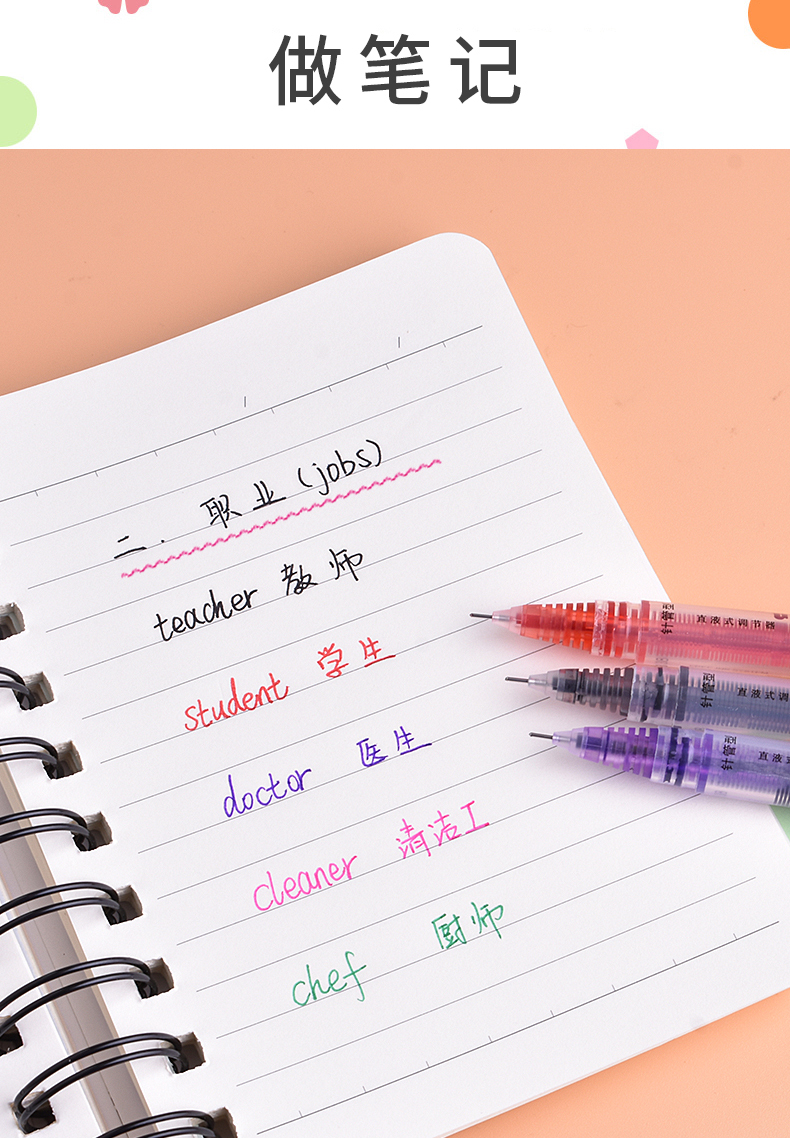 做笔记
二. 职业 (jobs)
teacher 教师
student 学生
doctor 医生
cleaner 清洁工
chef 厨师
针管型 直液式调节器
针管型 直液式调
针管型 直液式